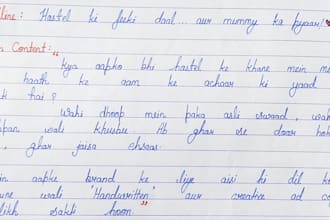 line: Hostel ki feeki daal... aur mummy ka pyaar!
Content: "
Kya aapko bhi hostel ke khane mein
haath ke aam ke achaar ki yaad
hai?
wahi dhoop mein paka asli swaad,
wali khushbu Ab ghar se door
, ghar jaisa ehsaas.
aapke brand ke liye aisi hi dil
wali 'Handwritten' aur creative ad
likh sakti hoon."